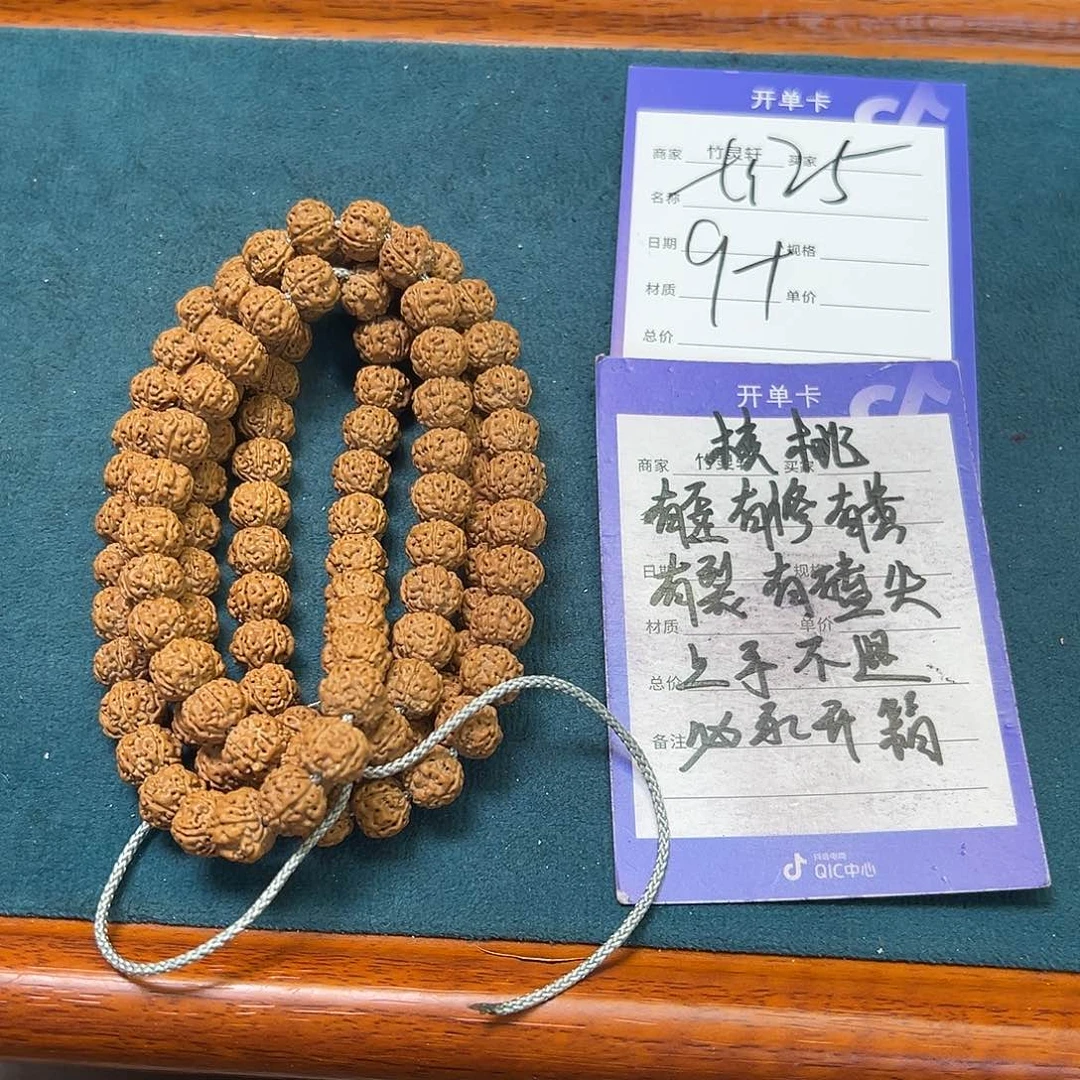 开单卡
商家 竹灵轩 买家
25
名称
日期 规格
9十
材质 单价
总价
开单卡
核桃
商家 买家
有歪有修有黄
日期 规格
有裂有磕尖
材质 单价
上手不退
总价
备注
必录开箱
抖音电商
QIC中心